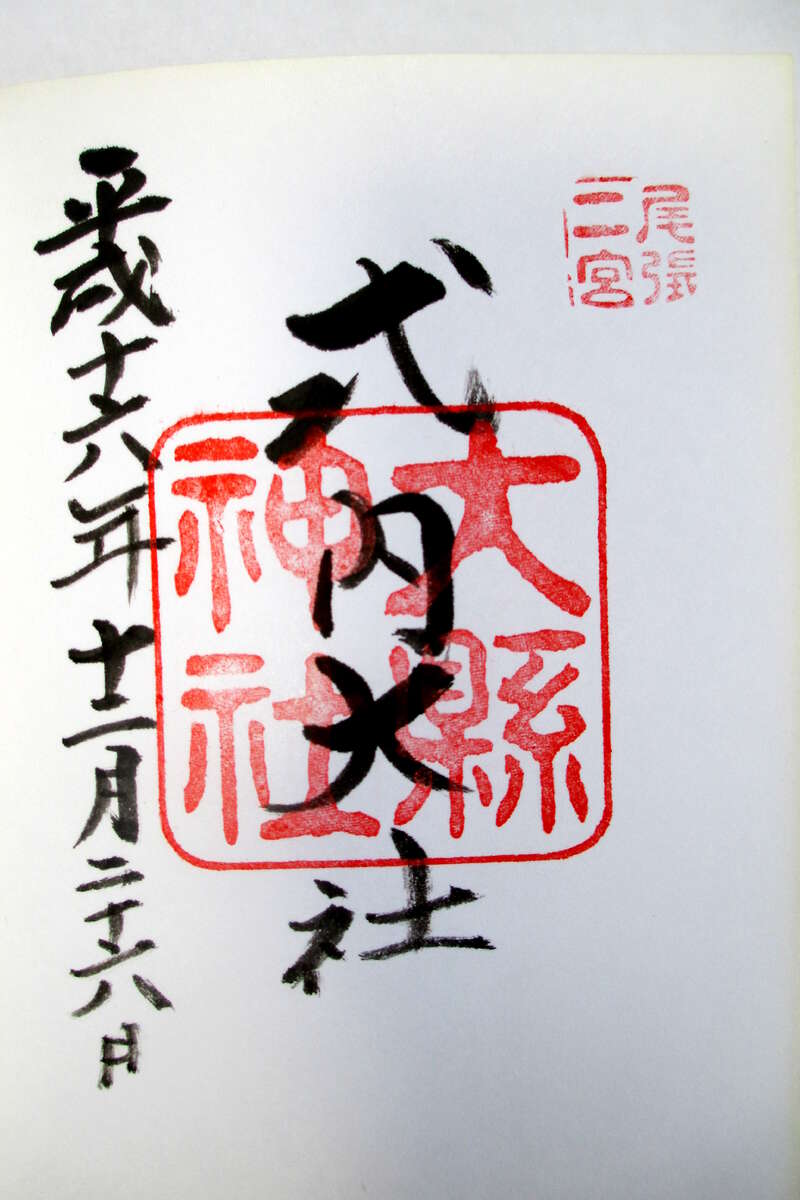 尾張
二宮
式内大社
大縣
神社
平成十六年十二月二十六日